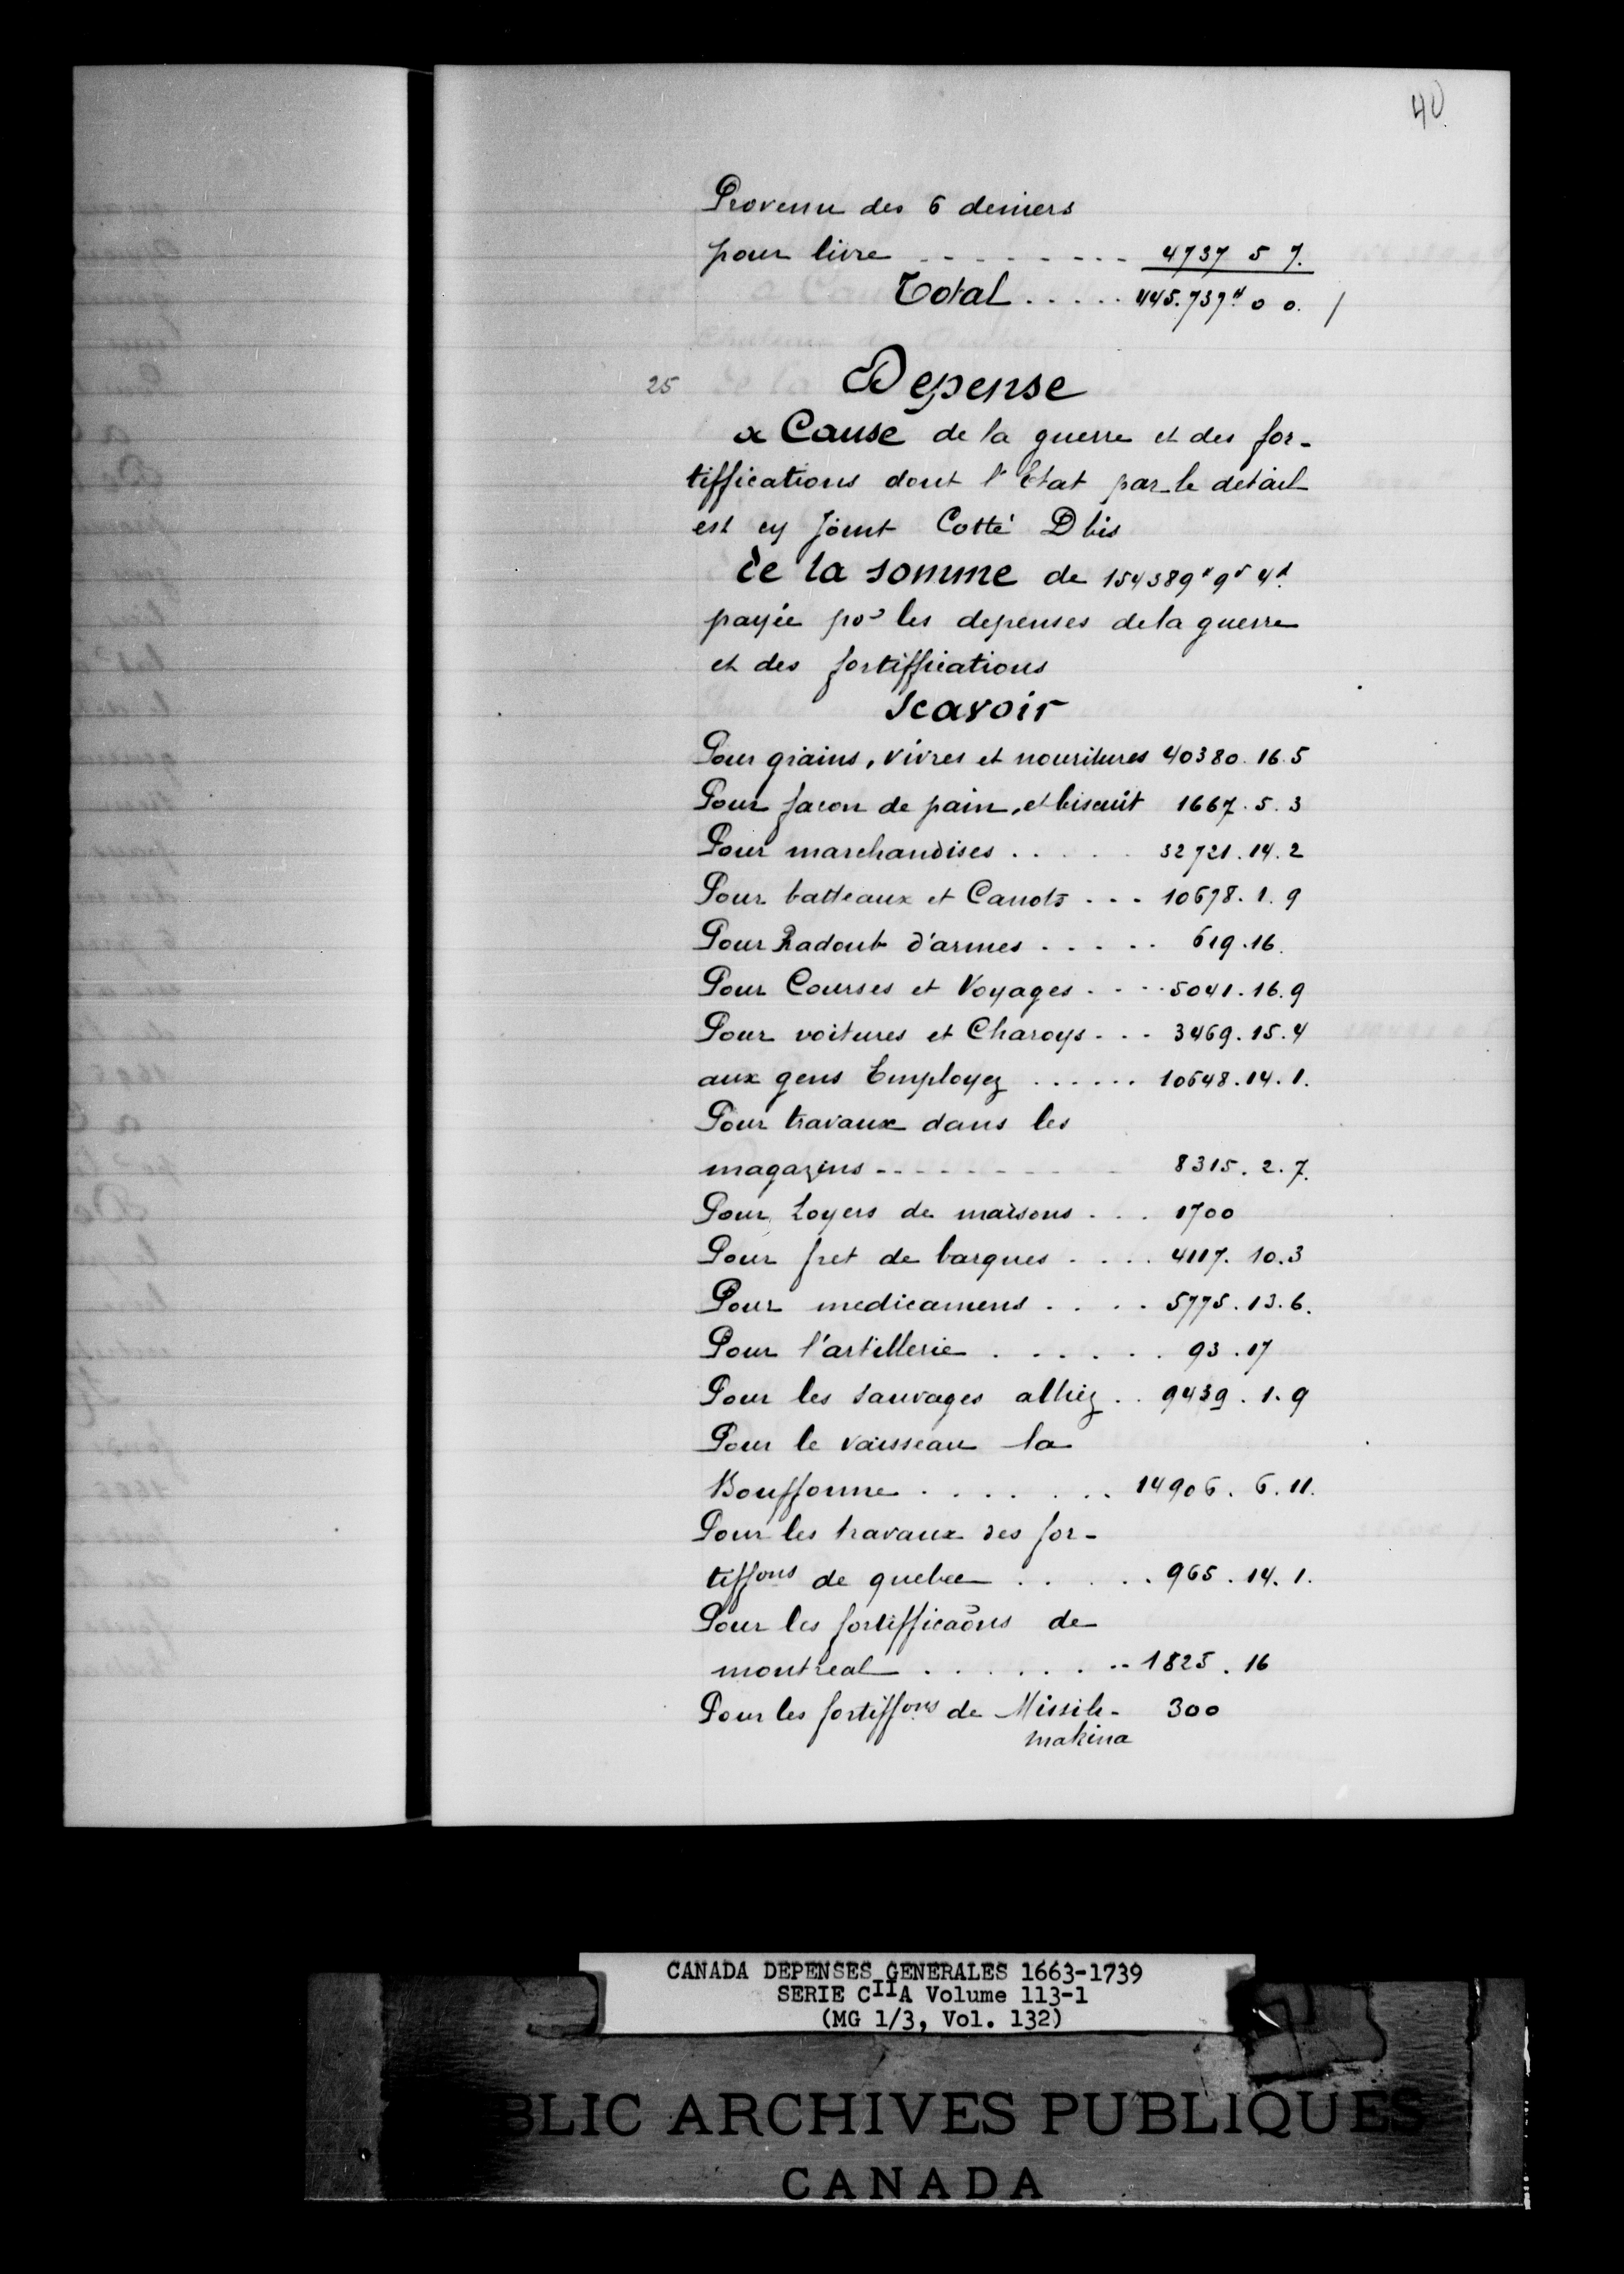 40
Provenu des 6 deniers
pour livre - - - - - - - - 4737 5 7.
Total . . . . . 445.737# 0 0. /
25 Depense
a Cause de la guerre et des for-
tiffications dont l'Etat par le detail
est cy joint Cotté D bis
De la somme de 154389# 9s 4d.
payée por les depenses de la guerre
et des fortiffications
Scavoir
Pour grains, vivres et nouritures 40380. 16. 5
Pour facon de pain, et biscuit 1667. 5. 3
Pour marchandises . . . . . 32721. 14. 2
Pour batteaux et Canots . . . 10678. 1. 9
Pour Radoub d'armes . . . . . 619. 16.
Pour Courses et Voyages . . . . 5041. 16. 9
Pour voitures et Charoys . . . 3469. 15. 4
aux gens Employez . . . . . . 10648. 14. 1.
Pour travaux dans les
magazins - - - - - - - - - 8315. 2. 7.
Pour Loyers de maisons . . . 1700
Pour fret de barques . . . . 4117. 10. 3
Pour medicamens . . . . 5775. 13. 6.
Pour l'artillerie . . . . . . 93. 17
Pour les sauvages alliez . . 9439. 1. 9
Pour le vaisseau la
Bouffonne . . . . . . . 14906. 6. 11.
Pour les travaux des for-
tiffons de quebec . . . . . 965. 14. 1.
Pour les fortifficaõns de
montreal . . . . . . . . 1825. 16
Pour les fortiffons de Missili- 300
makina
CANADA DEPENSES GENERALES 1663-1739
SERIE CIIA Volume 113-1
(MG 1/3, Vol. 132)
BLIC ARCHIVES PUBLIQUES
CANADA